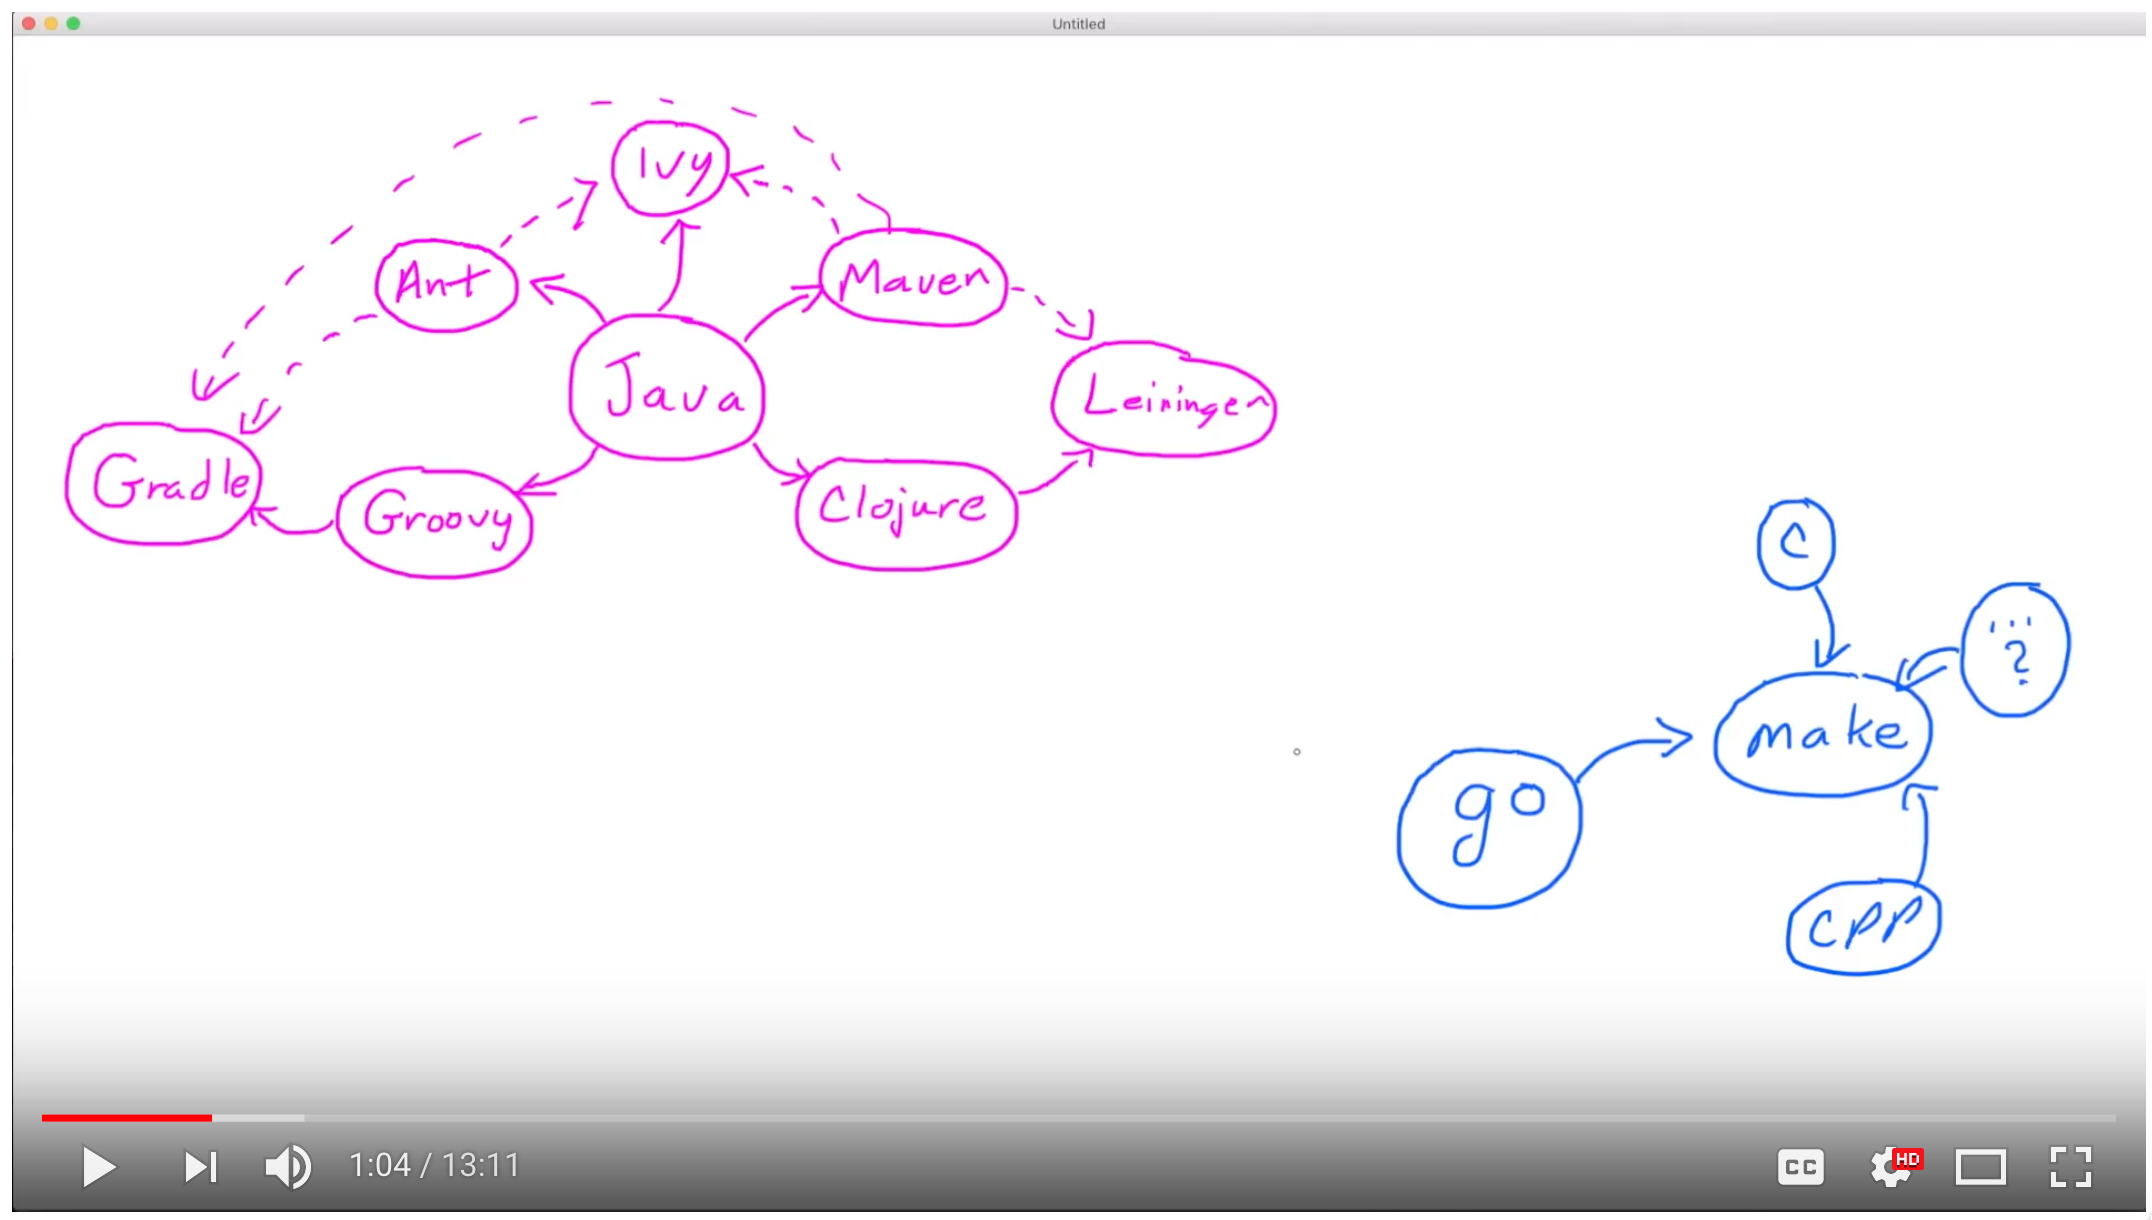 Untitled
Ivy
Ant
Maven
Java
Leiningen
Gradle
Groovy
Clojure
C
...
?
make
go
CPP
1:04 / 13:11
CC
HD